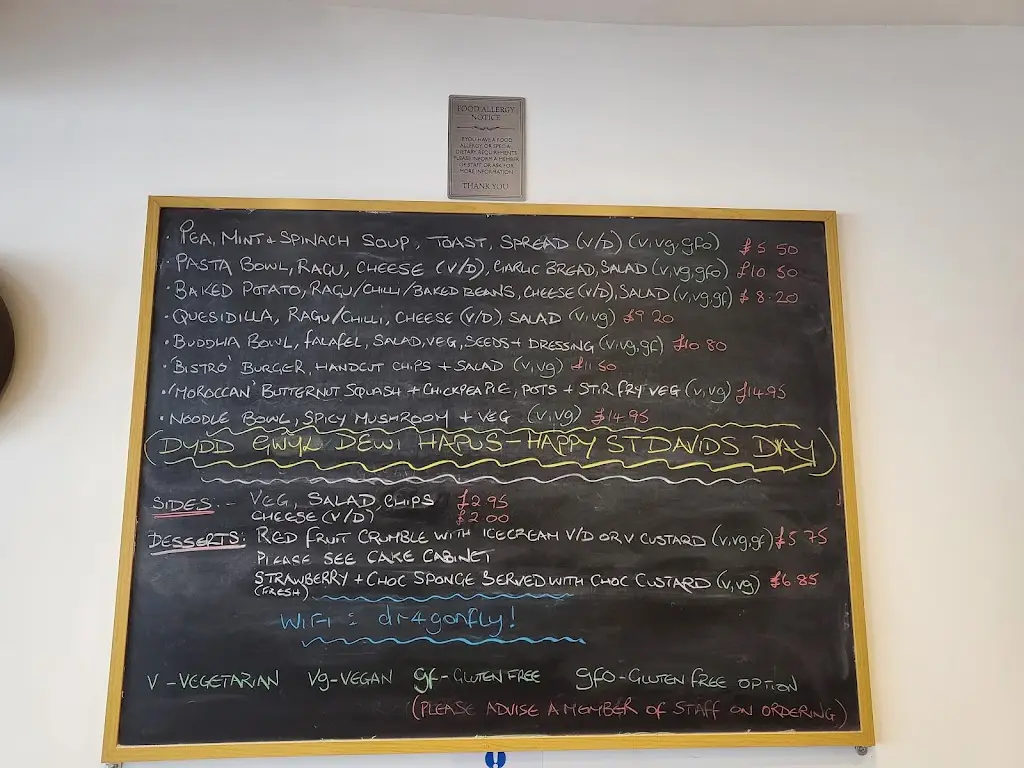 FOOD ALLERGY
NOTICE
IF YOU HAVE A FOOD
ALLERGY OR SPECIAL
DIETARY REQUIREMENTS
PLEASE INFORM A MEMBER
OF STAFF OR ASK FOR
MORE INFORMATION
THANK YOU
· PEA, MINT + SPINACH SOUP, TOAST, SPREAD (V/D) (v,vg,gfo) £5 50
· PASTA BOWL, RAGU, CHEESE (V/D), GARLIC BREAD, SALAD (v,vg,gfo) £10 50
· BAKED POTATO, RAGU/CHILLI/BAKED BEANS, CHEESE (V/D), SALAD (v,vg,gf) £8.20
· QUESIDILLA, RAGU/CHILLI, CHEESE (V/D), SALAD (v,vg) £9 20
· BUDDHA BOWL, FALAFEL, SALAD, VEG, SEEDS + DRESSING (v,vg,gf) £10 80
· 'BISTRO' BURGER, HANDCUT CHIPS + SALAD (v,vg) £11.50
· 'MOROCCAN' BUTTERNUT SQUASH + CHICKPEA PIE, POTS + STIR FRY VEG (v,vg) £14.95
· NOODLE BOWL, SPICY MUSHROOM + VEG (v,vg) £14 95
(DYDD GWYL DEWI HAPUS - HAPPY ST DAVIDS DAY)
SIDES:- VEG, SALAD, CHIPS £2 95
CHEESE (V/D) £2.00
DESSERTS: RED FRUIT CRUMBLE WITH ICECREAM V/D OR V CUSTARD (v,vg,gf) £5 75
PLEASE SEE CAKE CABINET
STRAWBERRY + CHOC SPONGE SERVED WITH CHOC CUSTARD (v,vg) £6 85
(FRESH)
WIFI : dr4gonfly!
V - VEGETARIAN Vg - VEGAN gf - GLUTEN FREE gfo - GLUTEN FREE OPTION
(PLEASE ADVISE A MEMBER OF STAFF ON ORDERING)